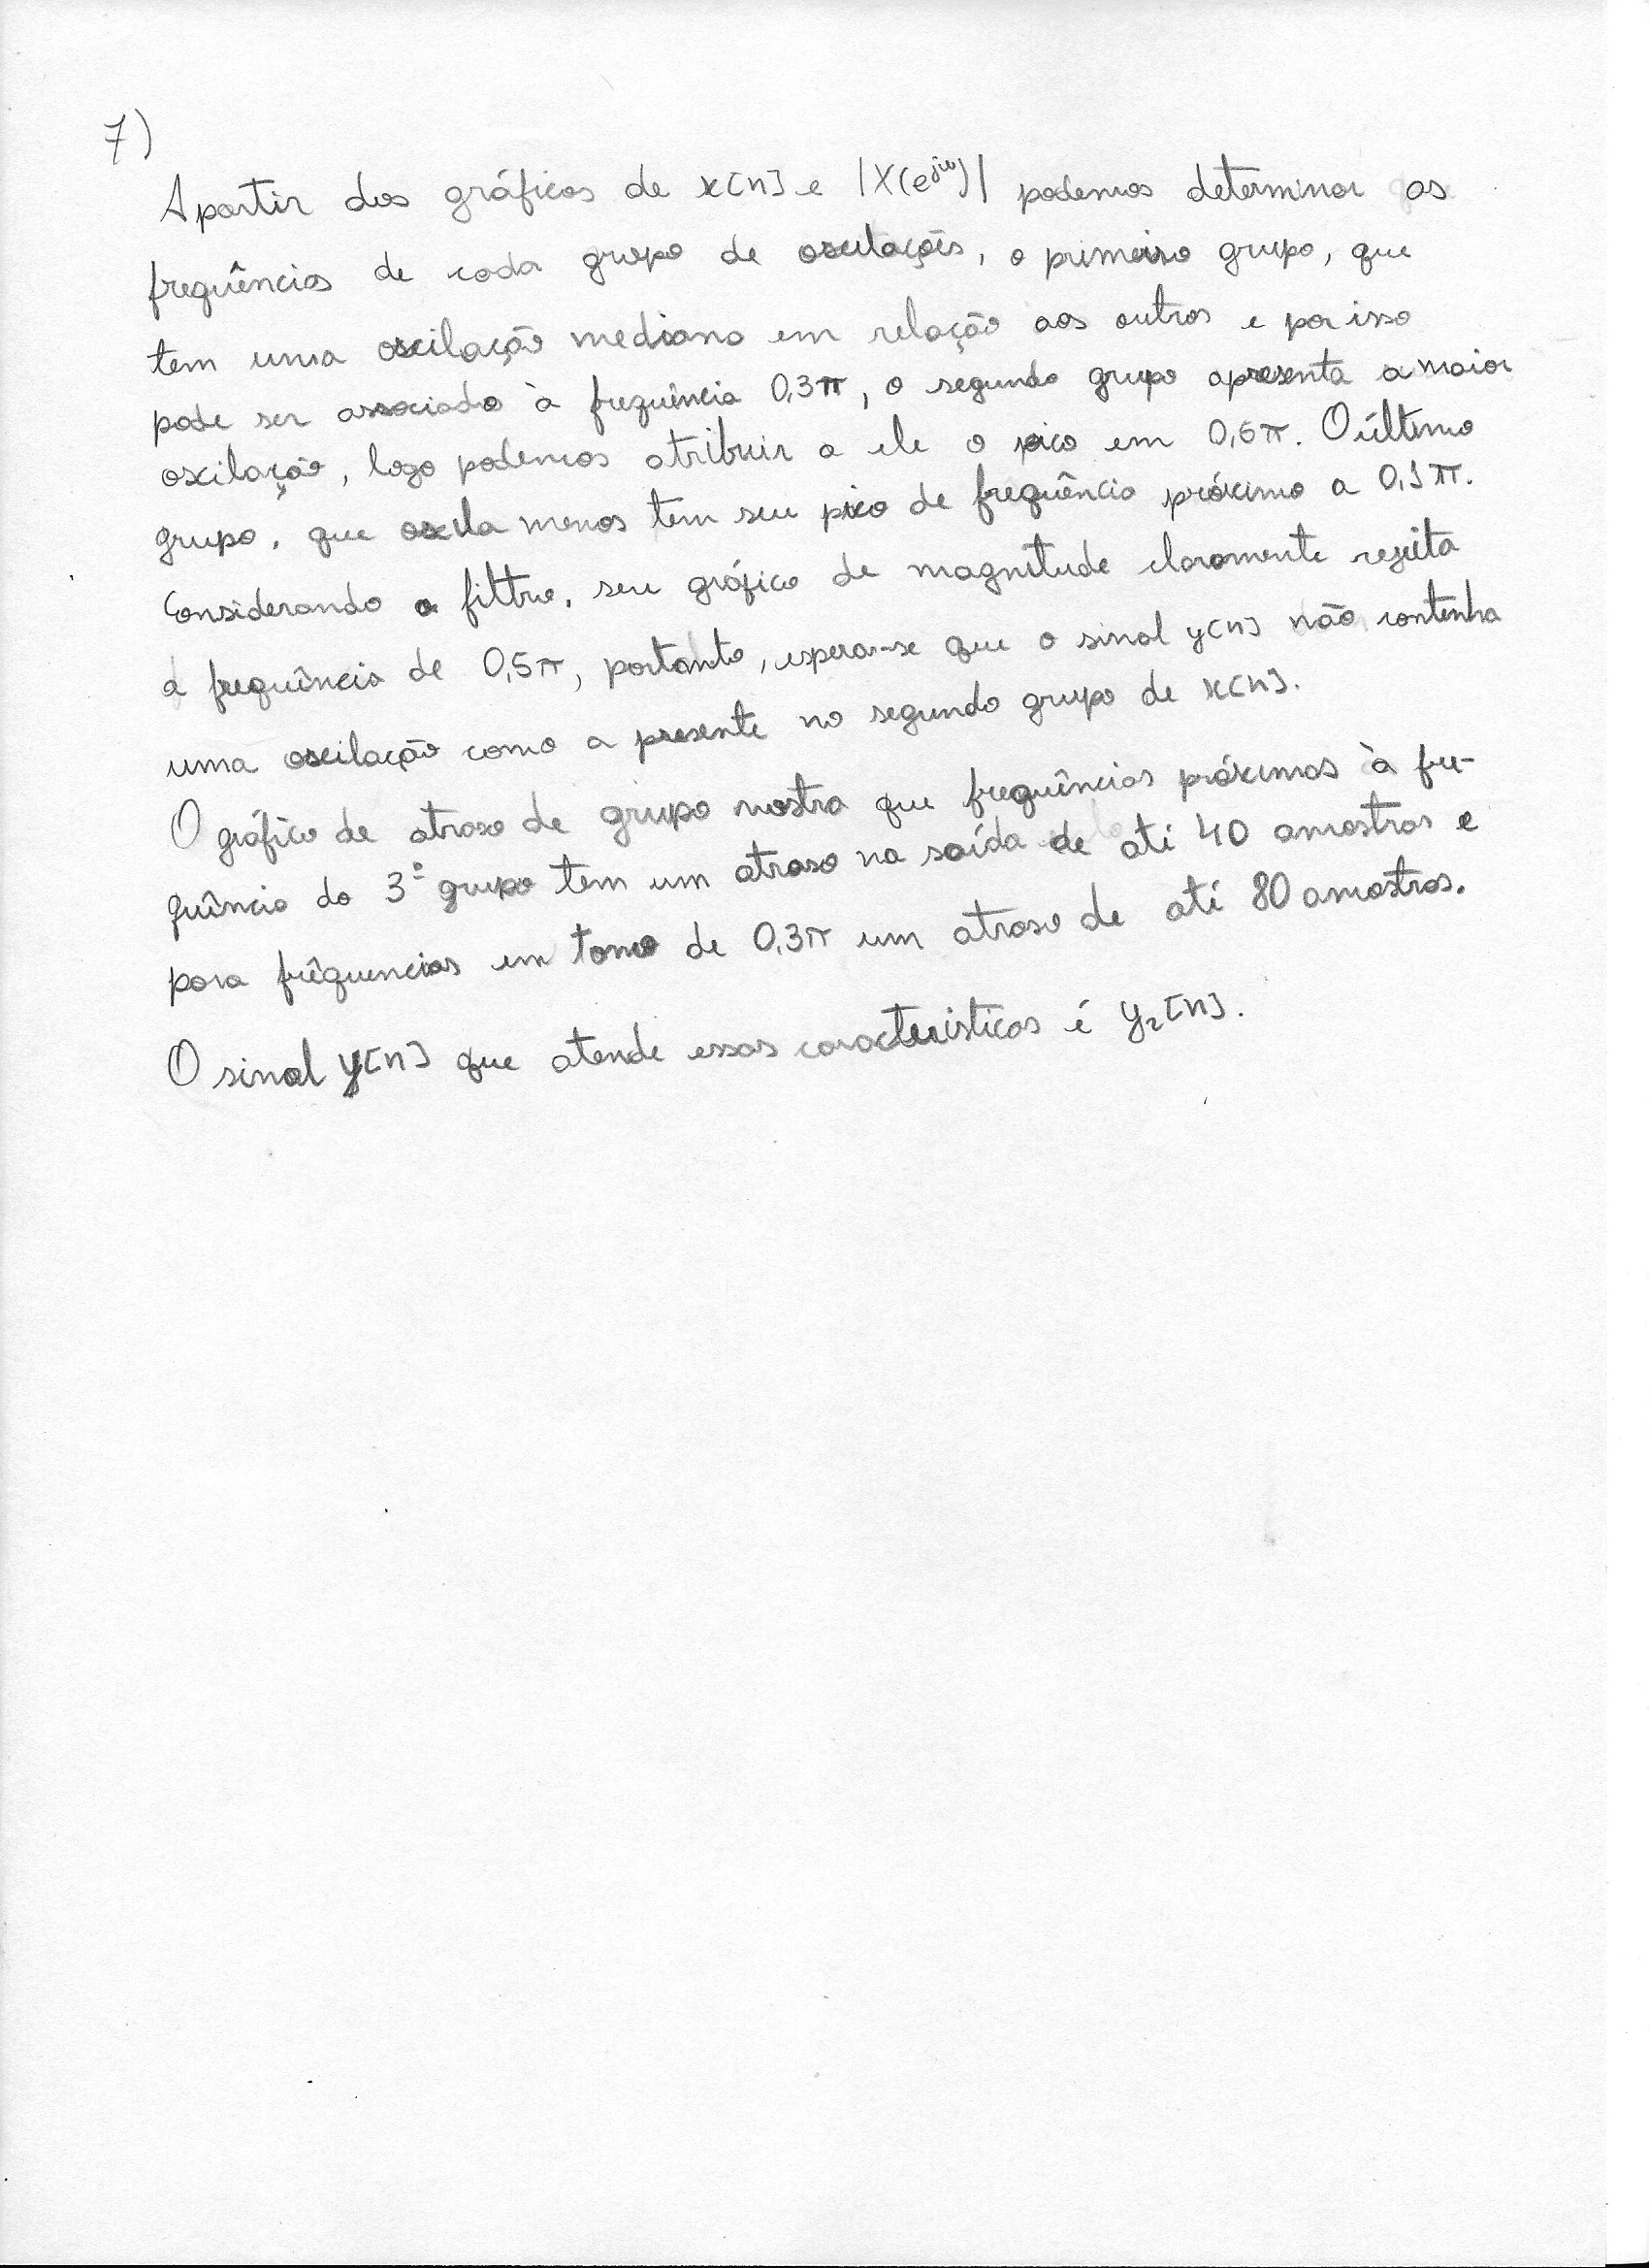 7)
A partir dos gráficos de x[n] e |X(e^jω)| podemos determinar as
frequências de cada grupo de oscilações, o primeiro grupo, que
tem uma oscilação mediana em relação aos outros e por isso
pode ser associado à frequência 0,3π, o segundo grupo apresenta a maior
oscilação, logo podemos atribuir a ele o pico em 0,5π. O último
grupo, que oscila menos tem seu pico de frequência próximo a 0,1π.
Considerando o filtro, seu gráfico de magnitude claramente rejeita
a frequência de 0,5π, portanto, espera-se que o sinal y[n] não contenha
uma oscilação como a presente no segundo grupo de x[n].
O gráfico de atraso de grupo mostra que frequências próximas à fre-
quência do 3º grupo tem um atraso na saída de até 40 amostras e
para frêquencias em torno de 0,3π um atraso de até 80 amostras.
O sinal y[n] que atende essas caracteristicas é y₂[n].